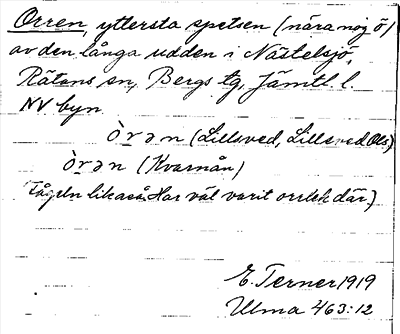 Orren, yttersta spetsen (nära nog ö)
av den långa udden i Nästelsjö,
Rätans sn, Bergs tg, Jämtl. l.
NV byn
òrən (Lillsved, Lillsved Ols)
òrən (Kvarnån)
(Fågeln likaså. Har väl varit orrlek där)
E. Terner 1919
Ulma 463:12